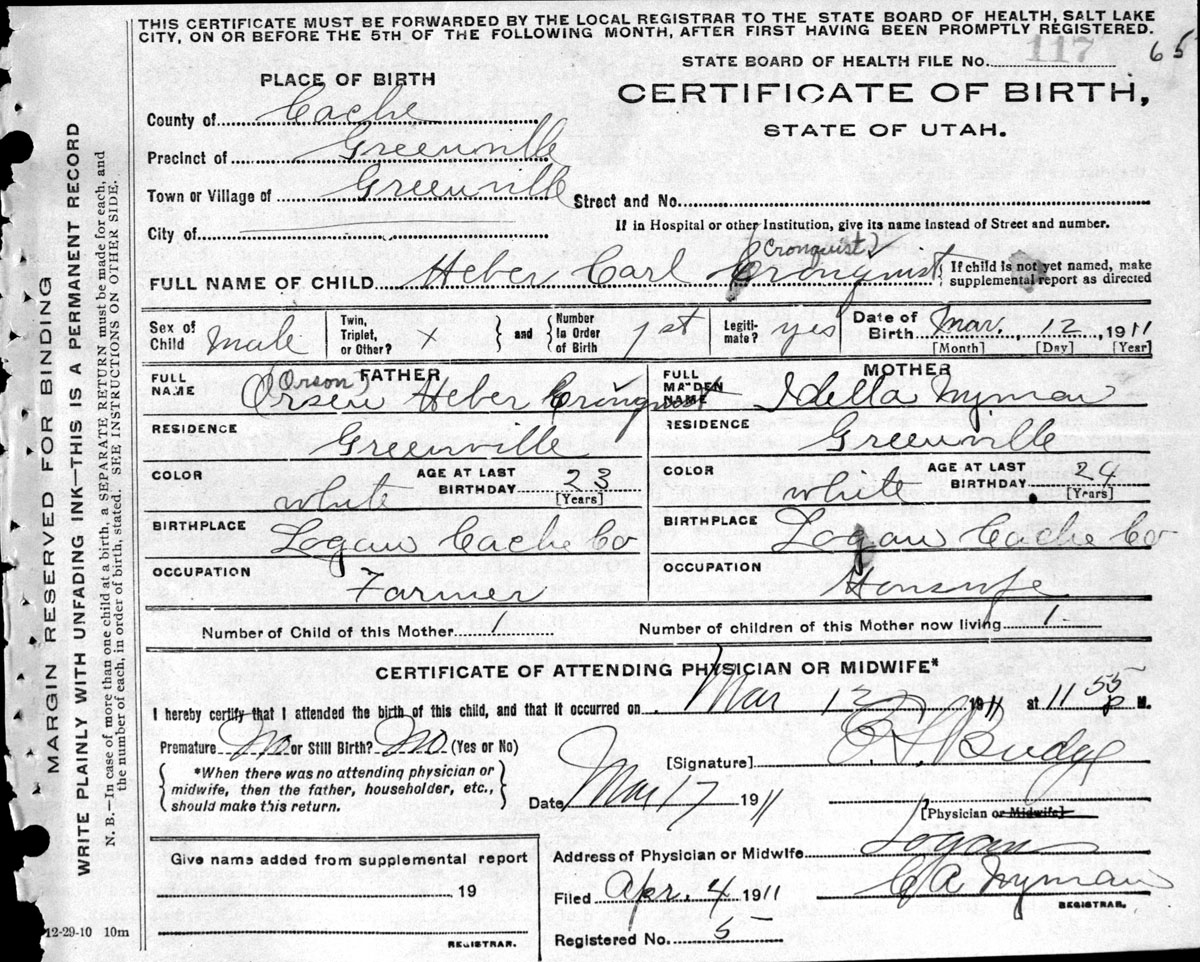 THIS CERTIFICATE MUST BE FORWARDED BY THE LOCAL REGISTRAR TO THE STATE BOARD OF HEALTH, SALT LAKE
CITY, ON OR BEFORE THE 5TH OF THE FOLLOWING MONTH, AFTER FIRST HAVING BEEN PROMPTLY REGISTERED.
65
STATE BOARD OF HEALTH FILE No. 117
CERTIFICATE OF BIRTH,
STATE OF UTAH.
PLACE OF BIRTH
County of Cache
Precinct of Greenville
Town or Village of Greenville
Street and No.
City of
If in Hospital or other Institution, give its name instead of Street and number.
(Cronquist)
FULL NAME OF CHILD Heber Carl Cronquist
{ If child is not yet named, make
supplemental report as directed
Sex of Child Male
Twin, Triplet, or Other? x } and { Number in Order of Birth 1st
Legiti-mate? yes
Date of Birth Mar. 12, 1911
[Month] [Day] [Year]
FATHER
FULL NAME (Orson)
Orsen Heber Cronquist
RESIDENCE Greenville
COLOR white
AGE AT LAST BIRTHDAY 23
[Years]
BIRTHPLACE Logan Cache Co
OCCUPATION Farmer
MOTHER
FULL MAIDEN NAME Idella Nyman
RESIDENCE Greenville
COLOR white
AGE AT LAST BIRTHDAY 24
[Years]
BIRTHPLACE Logan Cache Co
OCCUPATION Houswife
Number of Child of this Mother 1
Number of children of this Mother now living 1
CERTIFICATE OF ATTENDING PHYSICIAN OR MIDWIFE*
I hereby certify that I attended the birth of this child, and that it occurred on Mar 12 1911 at 11 55 p M.
Premature No or Still Birth? No (Yes or No)
{ *When there was no attending physician or
midwife, then the father, householder, etc.,
should make this return. }
[Signature] Budge
Date Mar 17 1911
[Physician or Midwife]
Address of Physician or Midwife Logan
Give name added from supplemental report
19
REGISTRAR.
Filed Apr. 4 1911
C A Nyman
REGISTRAR.
Registered No. 5
12-29-10 10m
MARGIN RESERVED FOR BINDING
WRITE PLAINLY WITH UNFADING INK—THIS IS A PERMANENT RECORD
N. B.—In case of more than one child at a birth, a SEPARATE RETURN must be made for each, and
the number of each, in order of birth, stated. SEE INSTRUCTIONS ON OTHER SIDE.